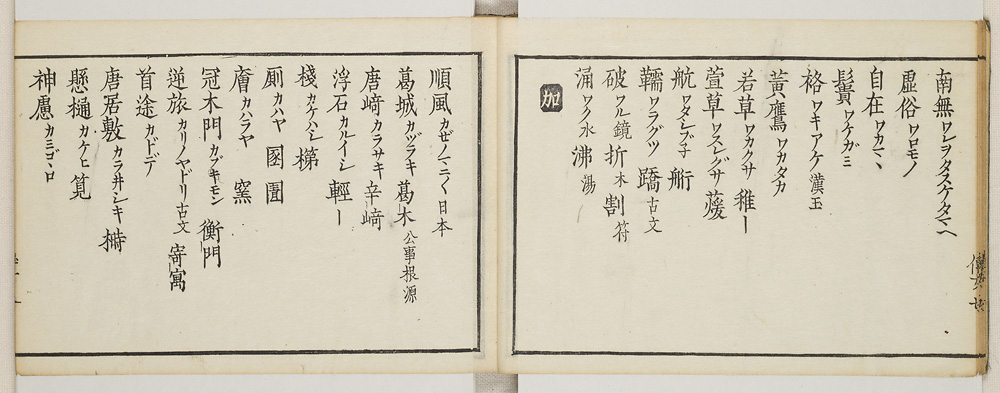 南無ワレヲタスケタマヘ
虚俗ワロモノ
自在ワカマヽ
鬢ワケガミ
袼ワキアケ漢玉
黄鷹ワカタカ
若草ワカクサ 稚ー
萱草ワスレグサ 蘐
航ワタシブ子 䑺
鞴ワラグツ 蹻古文
破ワル鏡 折木 割符
涌ワク水 沸湯
加
順風カゼノマニ〱日本
葛城カヅラキ 葛木公事根源
唐﨑カラサキ 辛﨑
浮石カルイシ 輕ー
棧カケハシ 梯
厠カハヤ 圂 圊
廥カハラヤ 窯
冠木門カブキモン 衡門
逆旅カリノヤドリ古文 寄寓
首途カドデ
唐居敷カラ井シキ 榯
懸樋カケヒ 筧
神慮カミゴヽロ